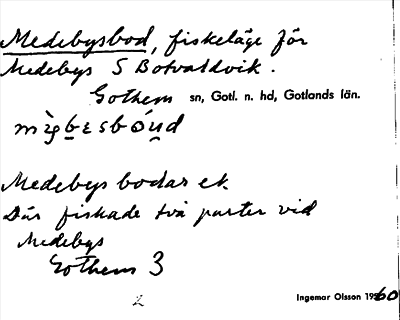 Medebysbod, fiskeläge för
Medebys S Botvaldvik.
Gothem sn, Gotl. n. hd, Gotlands län.
Medebys bodar ek.
Där fiskade två parter vid
Medebys
Gothem 3
2
Ingemar Olsson 1960